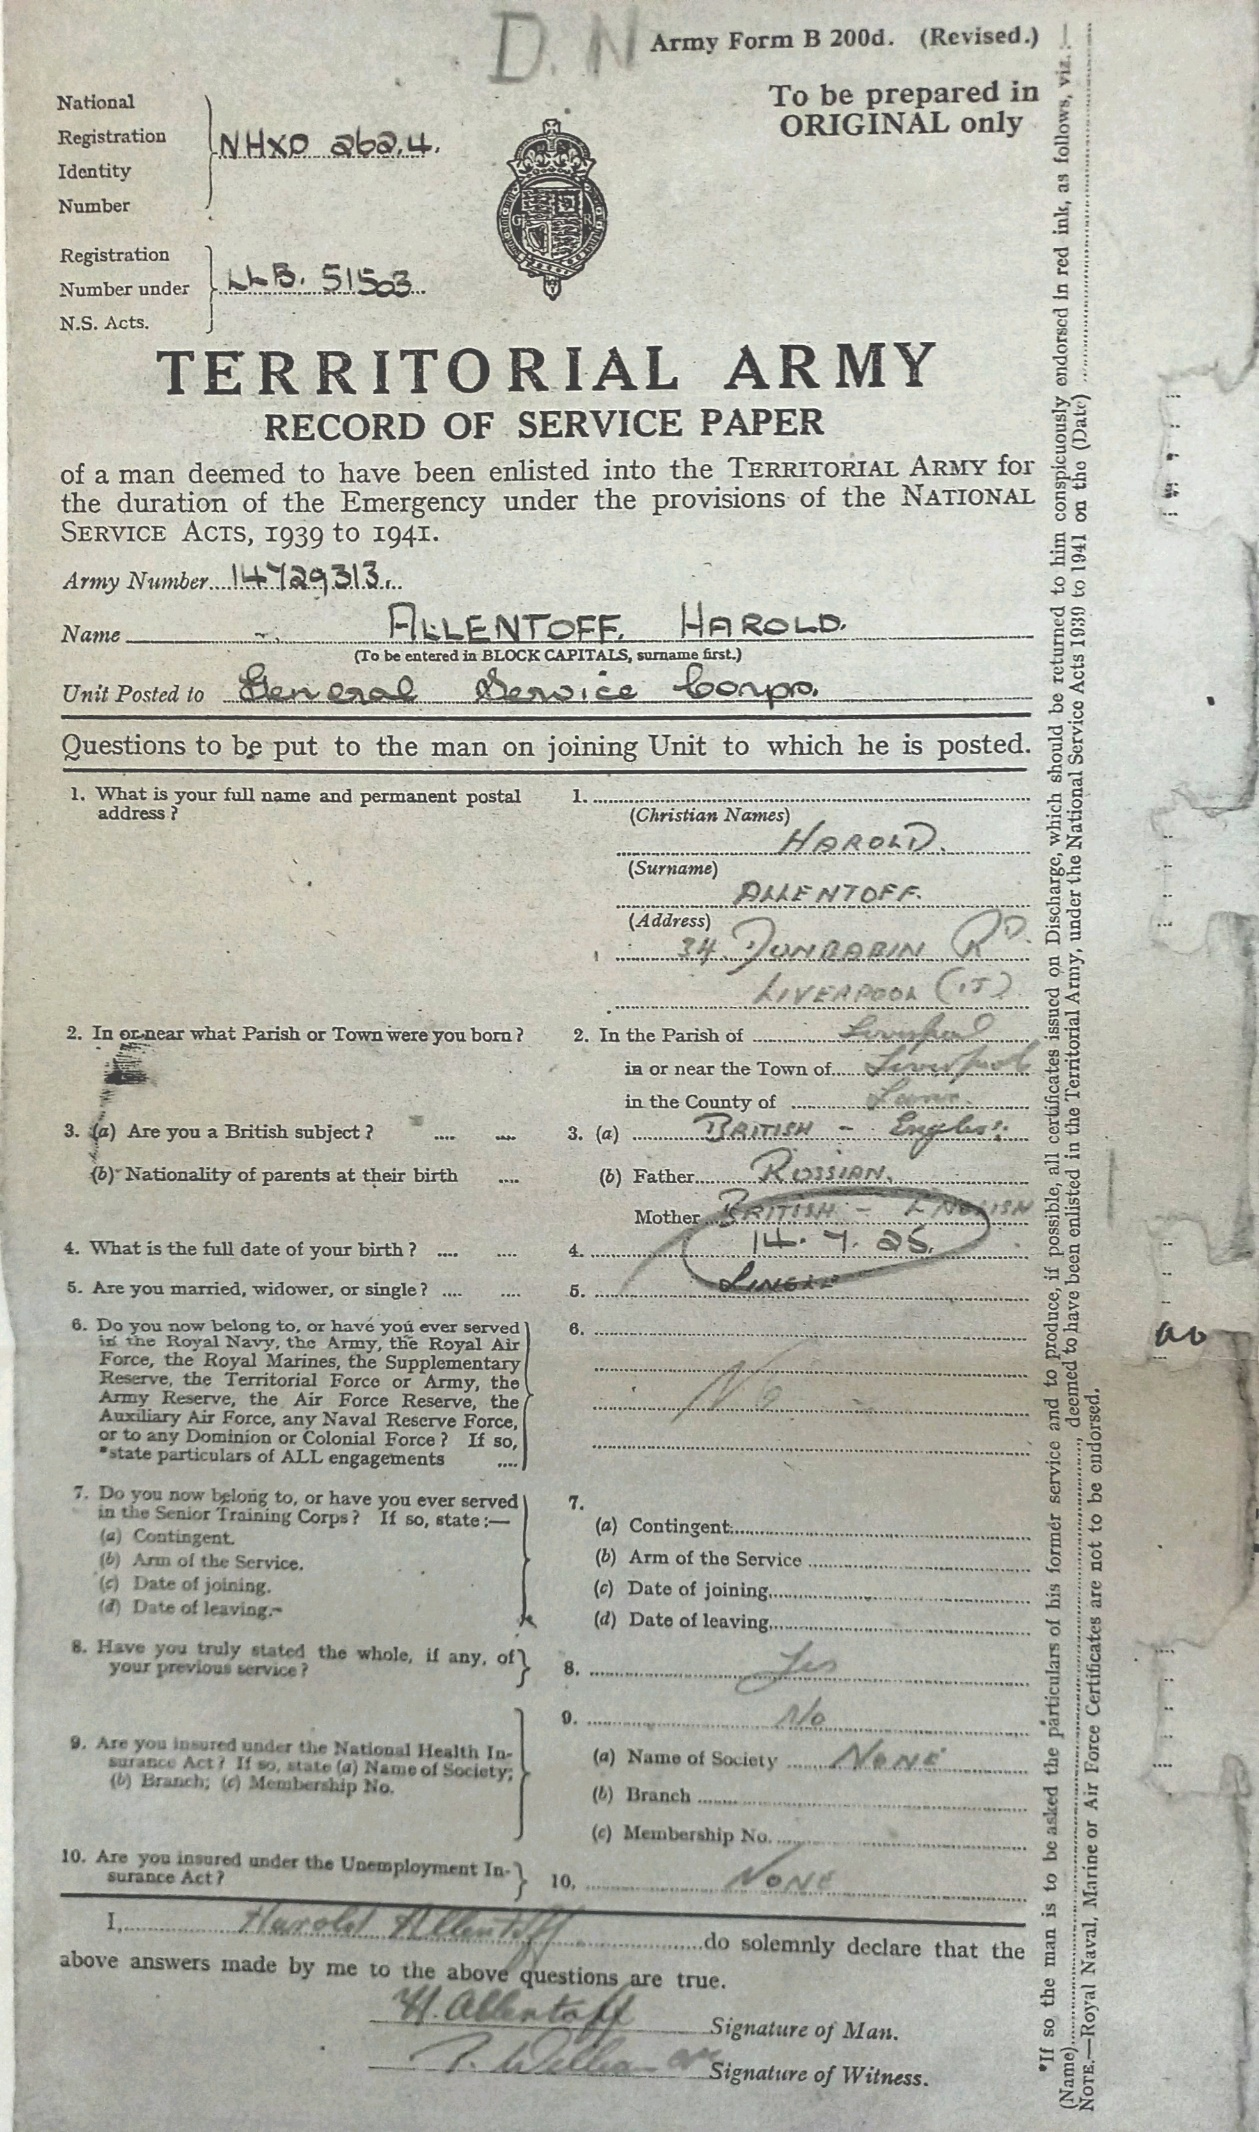 D. N
Army Form B 200d. (Revised.)
To be prepared in
ORIGINAL only
National
Registration
Identity
Number
NHXO 262.4.
Registration
Number under
N.S. Acts.
LLB. 51503
G R
TERRITORIAL ARMY
RECORD OF SERVICE PAPER
of a man deemed to have been enlisted into the TERRITORIAL ARMY for
the duration of the Emergency under the provisions of the NATIONAL
SERVICE ACTS, 1939 to 1941.
Army Number 14729313.
Name ALLENTOFF. HAROLD.
(To be entered in BLOCK CAPITALS, surname first.)
Unit Posted to General Service Corps.
Questions to be put to the man on joining Unit to which he is posted.
1. What is your full name and permanent postal
address ?
1.
(Christian Names)
HAROLD.
(Surname)
ALLENTOFF.
(Address)
34 DUNBABIN RD.
LIVERPOOL (15)
2. In or near what Parish or Town were you born ?
2. In the Parish of Liverpool
in or near the Town of Liverpool
in the County of Lanc.
3. (a) Are you a British subject ? .... ....
3. (a) BRITISH - English
(b) Nationality of parents at their birth ....
(b) Father RUSSIAN.
Mother BRITISH - ENGLISH
4. What is the full date of your birth ? .... ....
4. 14. 7. 25.
5. Are you married, widower, or single ? .... ....
5. SINGLE
6. Do you now belong to, or have you ever served
in the Royal Navy, the Army, the Royal Air
Force, the Royal Marines, the Supplementary
Reserve, the Territorial Force or Army, the
Army Reserve, the Air Force Reserve, the
Auxiliary Air Force, any Naval Reserve Force,
or to any Dominion or Colonial Force ? If so,
*state particulars of ALL engagements ....
6.
No
7. Do you now belong to, or have you ever served
in the Senior Training Corps ? If so, state :—
(a) Contingent.
(b) Arm of the Service.
(c) Date of joining.
(d) Date of leaving.
7.
(a) Contingent
(b) Arm of the Service
(c) Date of joining
(d) Date of leaving
8. Have you truly stated the whole, if any, of
your previous service ?
8. Yes
9. Are you insured under the National Health In-
surance Act ? If so, state (a) Name of Society;
(b) Branch; (c) Membership No.
9. No
(a) Name of Society NONE
(b) Branch
(c) Membership No.
10. Are you insured under the Unemployment In-
surance Act ?
10. NONE
I, Harold Allentoff do solemnly declare that the
above answers made by me to the above questions are true.
H. Allentoff Signature of Man.
Signature of Witness.
*If so the man is to be asked the particulars of his former service and to produce, if possible, all certificates issued on Discharge, which should be returned to him conspicuously endorsed in red ink, as follows, viz.
(Name) , deemed to have been enlisted in the Territorial Army, under the National Service Acts 1939 to 1941 on the (Date)
NOTE.—Royal Naval, Marine or Air Force Certificates are not to be endorsed.